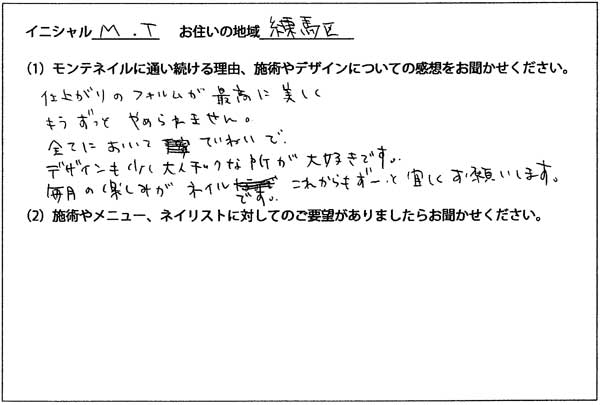 イニシャル M.T お住いの地域 練馬区
(1) モンテネイルに通い続ける理由、施術やデザインについての感想をお聞かせください。
仕上がりのフォルムが最高に美しく
もうずっとやめられません。
全てにおいて ていねいで、
デザインも少し大人チックな所が大好きです。
毎月の楽しみがネイルです。これからもずーっと宜しくお願いします。
(2) 施術やメニュー、ネイリストに対してのご要望がありましたらお聞かせください。